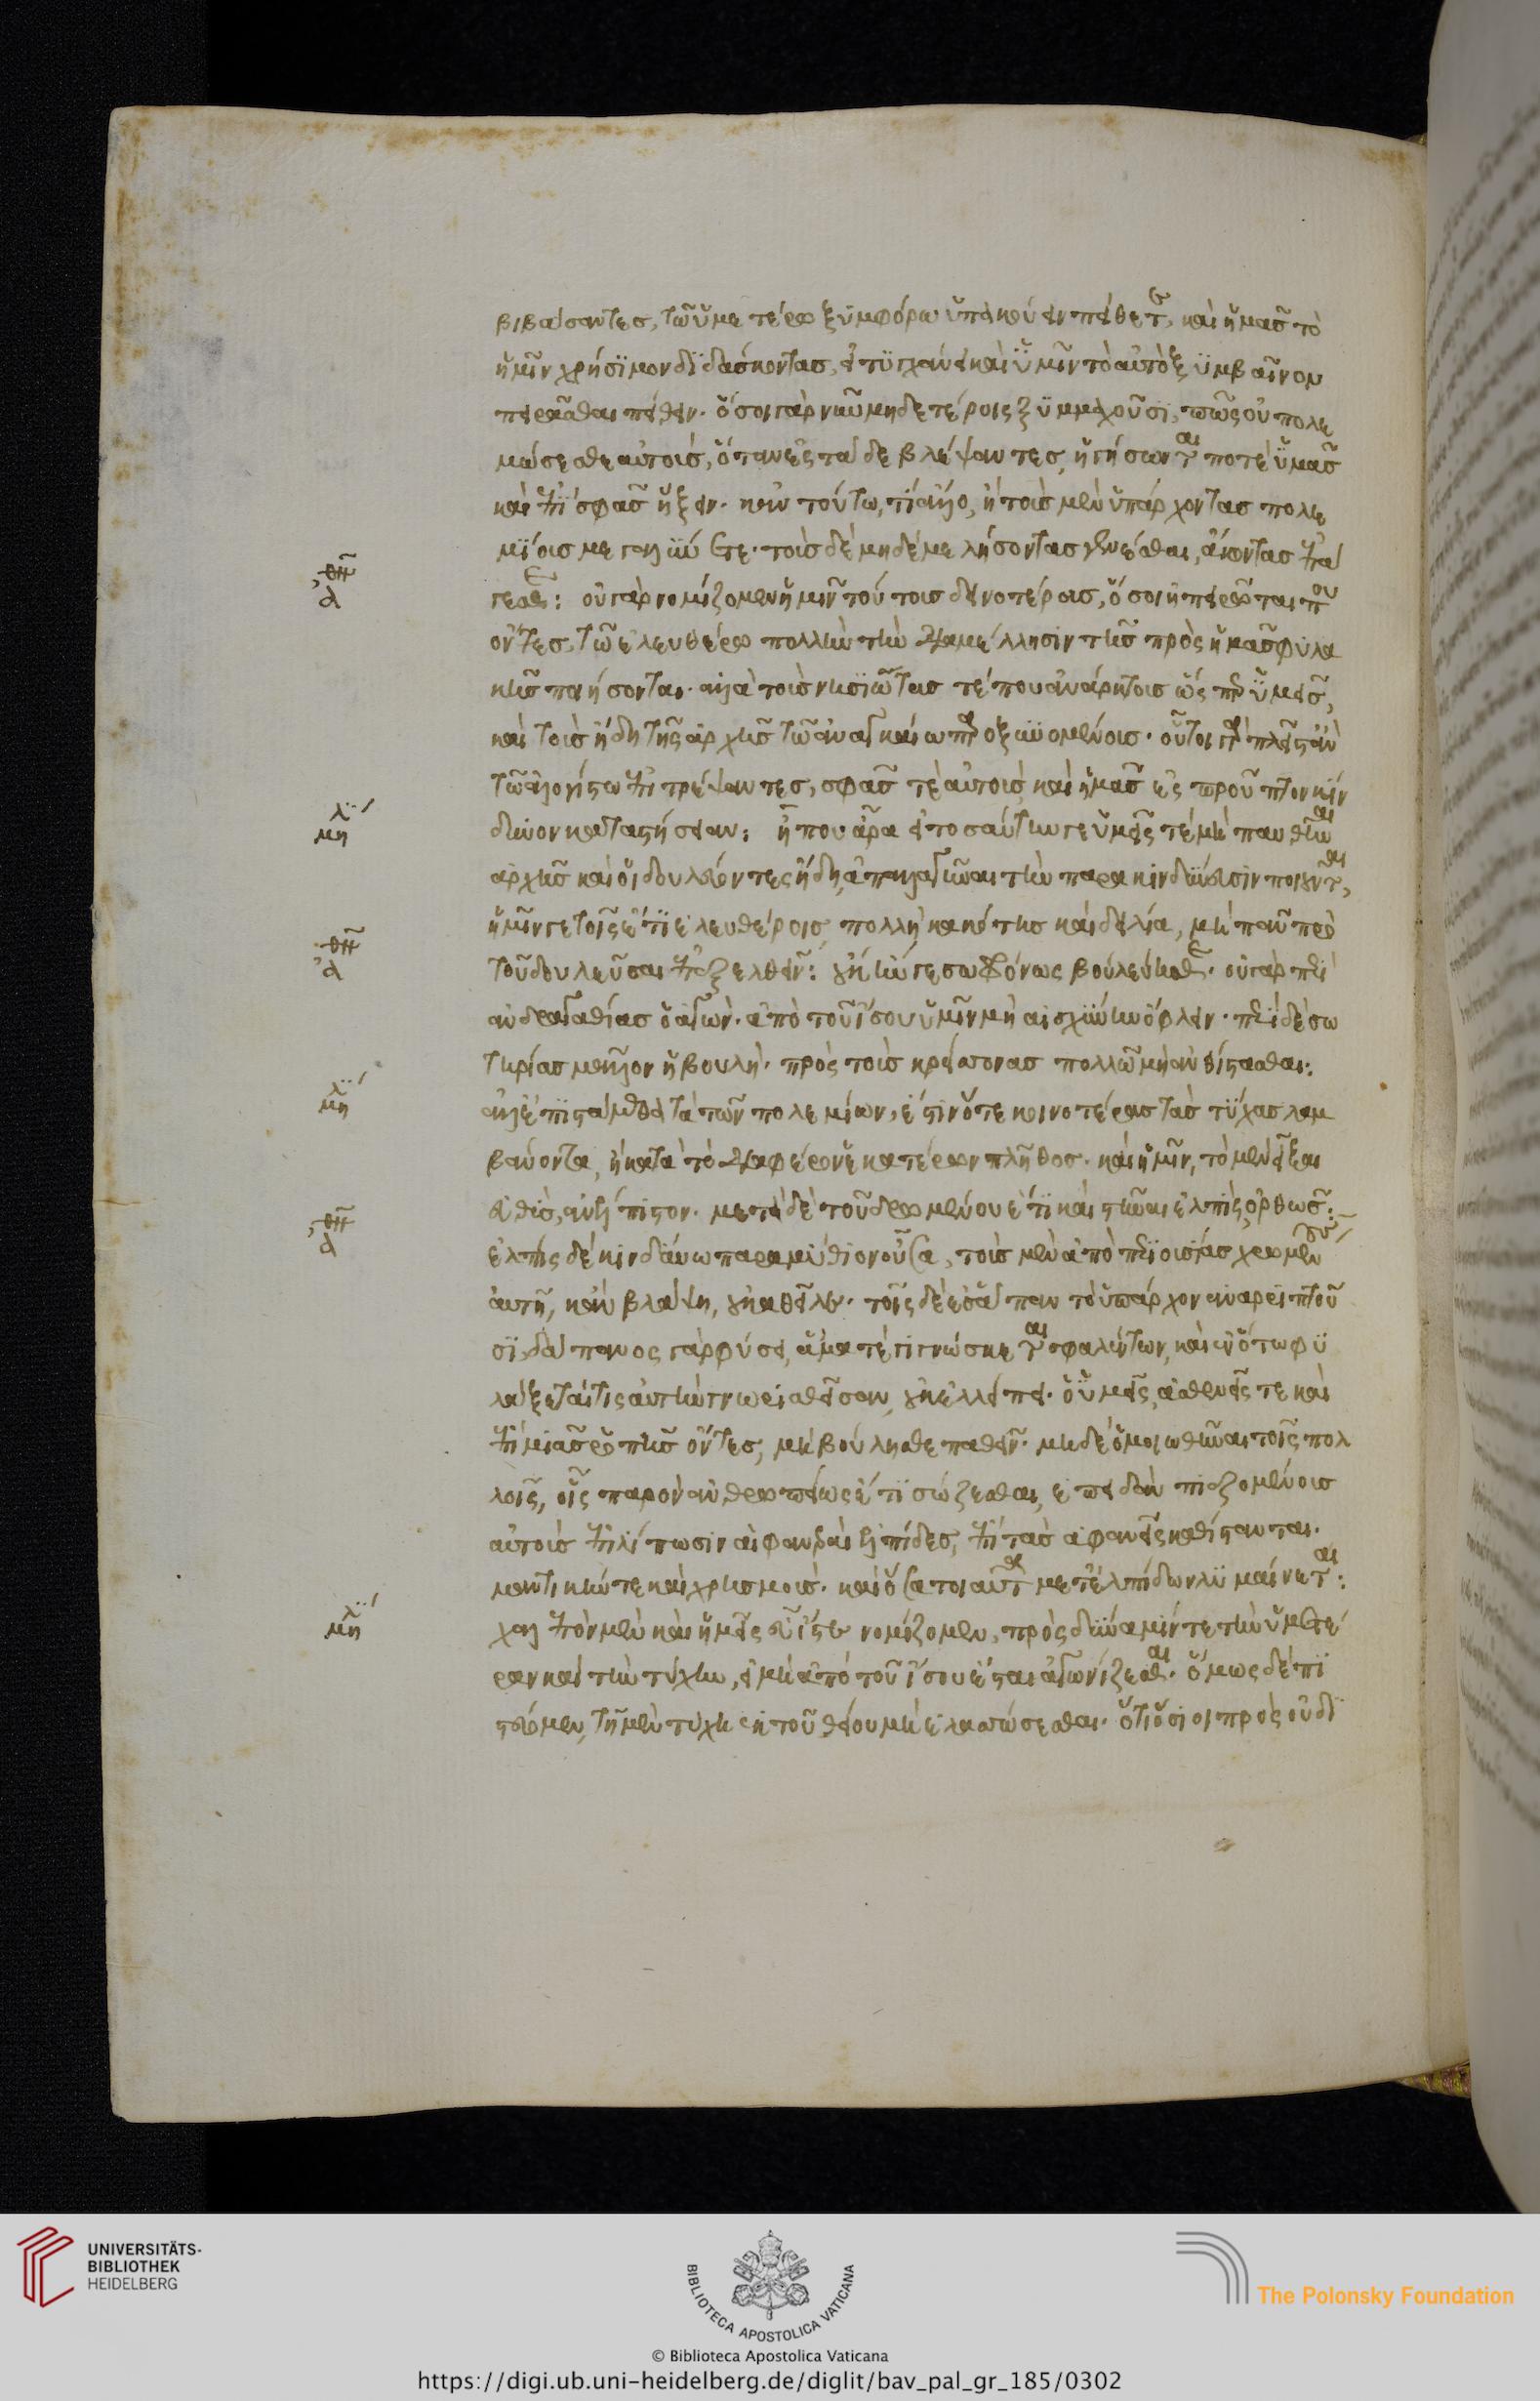 βιβάσαντες, τῶ ὑμετέρω ξυμφόρω ὑπακούειν πείθετε, καὶ ἡμᾶς τὸ
ἡμῖν χρήσϊμον δϊδάσκοντας, εἰ τϋγχάνει καὶ ὑμῖν τὸ αὐτὸ ξϋμβαῖνον
πειρᾶσθαι πείθειν. ὅσοι γὰρ νῦν μηδετέροις ξϋμμαχοῦσϊ, πῶς οὐ πολε
μώσεσθε αὐτοὺς, ὅταν ἐς τάδε βλέψαντες, ἡγήσωνται ποτὲ ὑμᾶς
καὶ ἐπὶ σφᾶς ἥξειν. κἀν τούτω, τί ἄλλο, ἢ τοὺς μὲν ὑπάρχοντας πολε
μϊους μεγαλϋνετε. τοὺς δὲ μηδὲ μελήσοντας γενέσθαι, ἄκοντας ἐπά
αθη
γεσθε: οὐ γὰρ νομίζομεν ἡμῖν τούτους δεινοτέρους, ὅσοι ἠπειρῶται που
ὄντες, τῶ ἐλευθέρω πολλὴν τὴν διαμέλλησιν τῆς πρὸς ἡμᾶς φυλα
κῆς ποιήσονται. ἀλλὰ τοὺς νησϊώτας τέ που ἀνάρκτους ὥσπερ ὑμᾶς,
καὶ τοὺς ἤδη τῆς ἀρχῆς τῶ ἀναγκαίω παροξϋνομένους. οὗτοι γὰρ πλεῖστ' ἂν
τῶ ἀλογίστω ἐπιτρέψαντες, σφᾶς τὲ αὐτοὺς καὶ ἡμᾶς ἐς προῦπτον κίν
μηλϊ
δυνον καταστήσειαν: ἦ που ἄρα εἰ τοσαύτην γε ὑμεῖς τὲ μὴ παυσθῆναι
ἀρχῆς καὶ οἱ δουλεύοντες ἤδη, ἀπαλλαγῆναι τὴν παρακινδύνευσιν ποιοῦνται,
αθη
ἡμῖν γε τοῖς ἔτι ἐλευθέροις, πολλὴ κακότης καὶ δειλία, μὴ πᾶν πρὸ
τοῦ δουλεῦσαι ἐπεξελθεῖν: οὐκ ἤν γε σωφρόνως βουλεύησθε. οὐ γὰρ περὶ
ἀνδραγαθίας ὁ ἀγών. ἀπὸ τοῦ ἴσου ὑμῖν μὴ αἰσχϋνην ὄφλειν. περὶ δὲ σω
τηρίας μᾶλλον ἡ βουλή. πρὸς τοὺς κρείσσονας πολλῶ μὴ ἀνθίστασθαι:
μηλϊ
ἀλλ' ἐπϊστάμεθα τὰ τῶν πολεμίων, ἔστιν ὅτε κοινοτέρας τὰς τύχας λαμ
βάνοντα, ἢ κατὰ τὸ διαφέρον ἑκατέρων πλῆθος. καὶ ἡμῖν, τὸ μὲν εἶξαι
εὐθὺς, ἀνέλπιστον. μετὰ δὲ τοῦ δρωμένου ἔτι καὶ στῆναι ἐλπὶς ὀρθῶς:
αθη
ἐλπὶς δὲ κινδύνω παραμύθιον οὖσα, τοὺς μὲν ἀπὸ περϊουσίας χρωμένους
αὐτῆ, κἂν βλάψη, οὐ καθεῖλεν. τοῖς δὲ ἐς ἅπαν τὸ ὑπάρχον ἀναριπτοῦ
σϊ, δάπανος γὰρ φύσει, ἅμα τὲ γιγνώσκεται σφαλέντων, καὶ ἐν ὅτω φϋ
λάξεταί τις αὐτὴν γνωρισθεῖσαν, οὐκ ἐλλείπει. ὃ ὑμεῖς, ἀσθενεῖς τε καὶ
ἐπὶ μιᾶς ῥοπῆς ὄντες, μὴ βούλησθε παθεῖν. μηδὲ ὁμοιωθῆναι τοῖς πολ
λοῖς, οἷς παρὸν ἀνθρωπείως ἔτϊ σώζεσθαι, ἐπειδὰν πιεζομένους
αὐτοὺς ἐπιλίπωσιν αἱ φανεραὶ ἐλπίδες, ἐπὶ τὰς ἀφανεῖς καθίστανται.
μαντικήν τε καὶ χρησμούς. καὶ ὅσα τοιαῦτα μετ' ἐλπίδων λϋμαίνεται:
μηλϊ
χαλεπὸν μὲν καὶ ἡμεῖς εὖ ἴστε νομίζομεν, πρὸς δύναμίν τε τὴν ὑμετέ
ραν καὶ τὴν τύχην, εἰ μὴ ἀπὸ τοῦ ἴσου ἔσται ἀγωνίζεσθαι. ὅμως δὲ πϊ
στεύομεν, τῆ μὲν τύχη ἐκ τοῦ θείου μὴ ἐλασσώσεσθαι. ὅτι ὅσιοι πρὸς οὐ δϊ
UNIVERSITÄTS-
BIBLIOTHEK
HEIDELBERG
BIBLIOTECA APOSTOLICA VATICANA
The Polonsky Foundation
© Biblioteca Apostolica Vaticana
https://digi.ub.uni-heidelberg.de/diglit/bav_pal_gr_185/0302